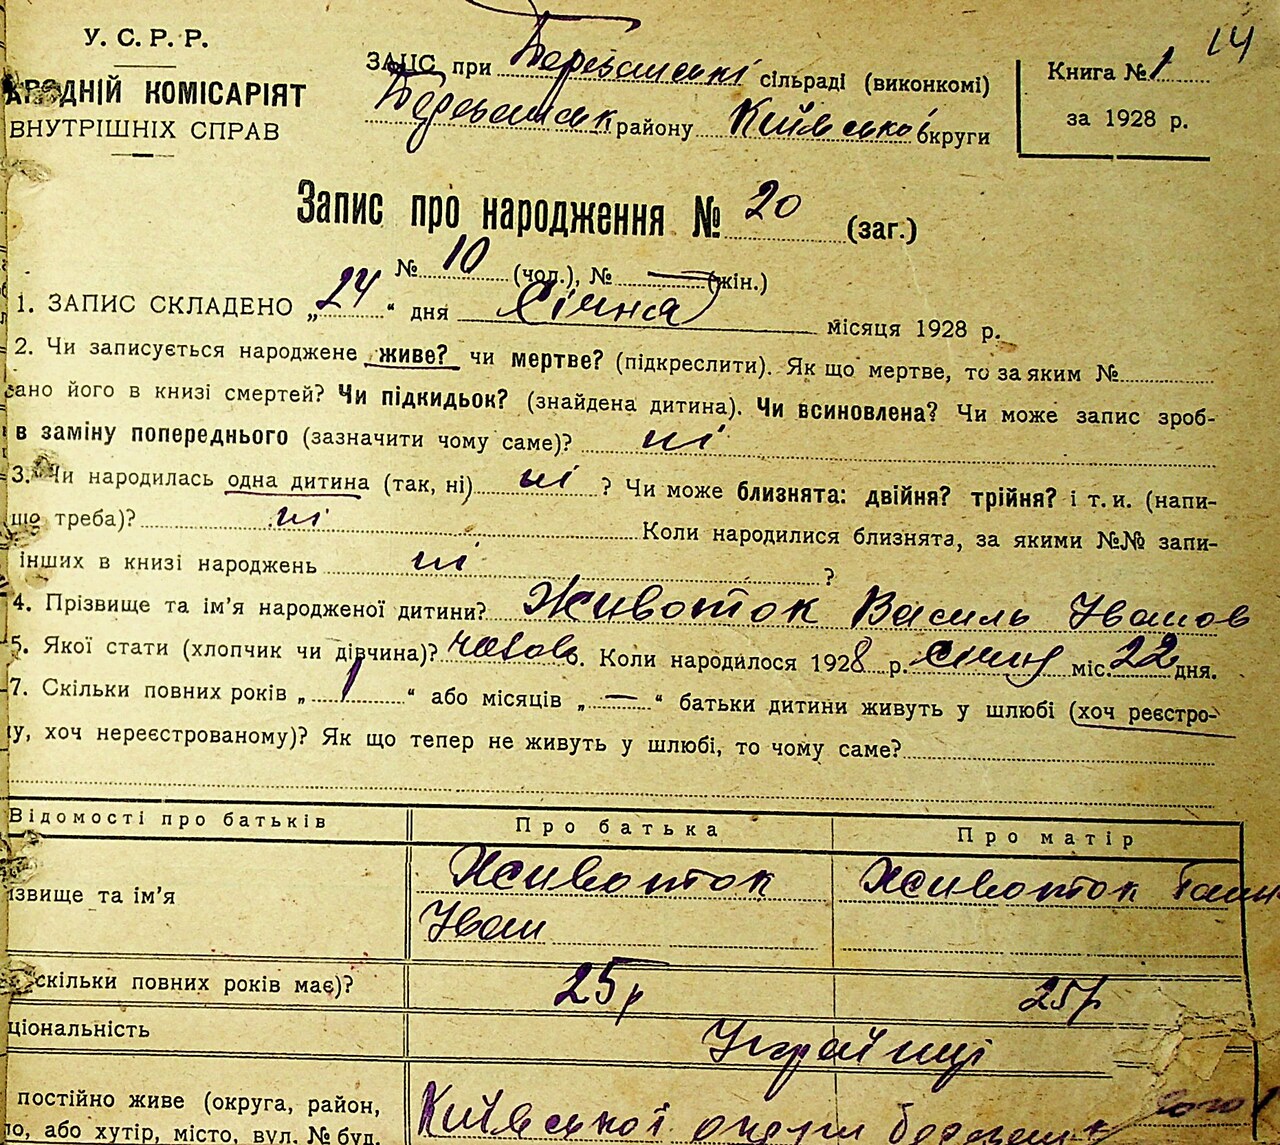 14
У. С. Р. Р.
АРОДНІЙ КОМІСАРІЯТ
ВНУТРІШНІХ СПРАВ
ЗАЦС при Березанські сільраді (виконкомі)
Березанськ району Київської округи
Книга № 1
за 1928 р.
Запис про народження № 20 (заг.)
№ 10 (чол.), № — (жін.)
1. ЗАПИС СКЛАДЕНО „24“ дня Січня місяця 1928 р.
2. Чи записується народжене живе? чи мертве? (підкреслити). Як що мертве, то за яким №
сано його в книзі смертей? Чи підкидьок? (знайдена дитина). Чи всиновлена? Чи може запис зроб-
в заміну попереднього (зазначити чому саме)? ні
3. Чи народилась одна дитина (так, ні) ні ? Чи може близнята: двійня? трійня? і т. и. (напи-
що треба)? ні Коли народилися близнята, за якими №№ запи-
інших в книзі народжень ні ?
4. Прізвище та ім'я народженої дитини? Животок Василь Іванов
5. Якої стати (хлопчик чи дівчина)? 6. Коли народилося 1928 р. січня міс. 22 дня.
7. Скільки повних років „ 1 “ або місяців „ — “ батьки дитини живуть у шлюбі (хоч реєстро-
у, хоч нереєстрованому)? Як що тепер не живуть у шлюбі, то чому саме?
Відомості про батьків Про батька Про матір
ізвище та ім'я Животок Животок
Іван
скільки повних років має)? 25р 25р
ціональність Українці
постійно живе (округа, район, Київської округи
ло, або хутір, місто, вул. № буд.